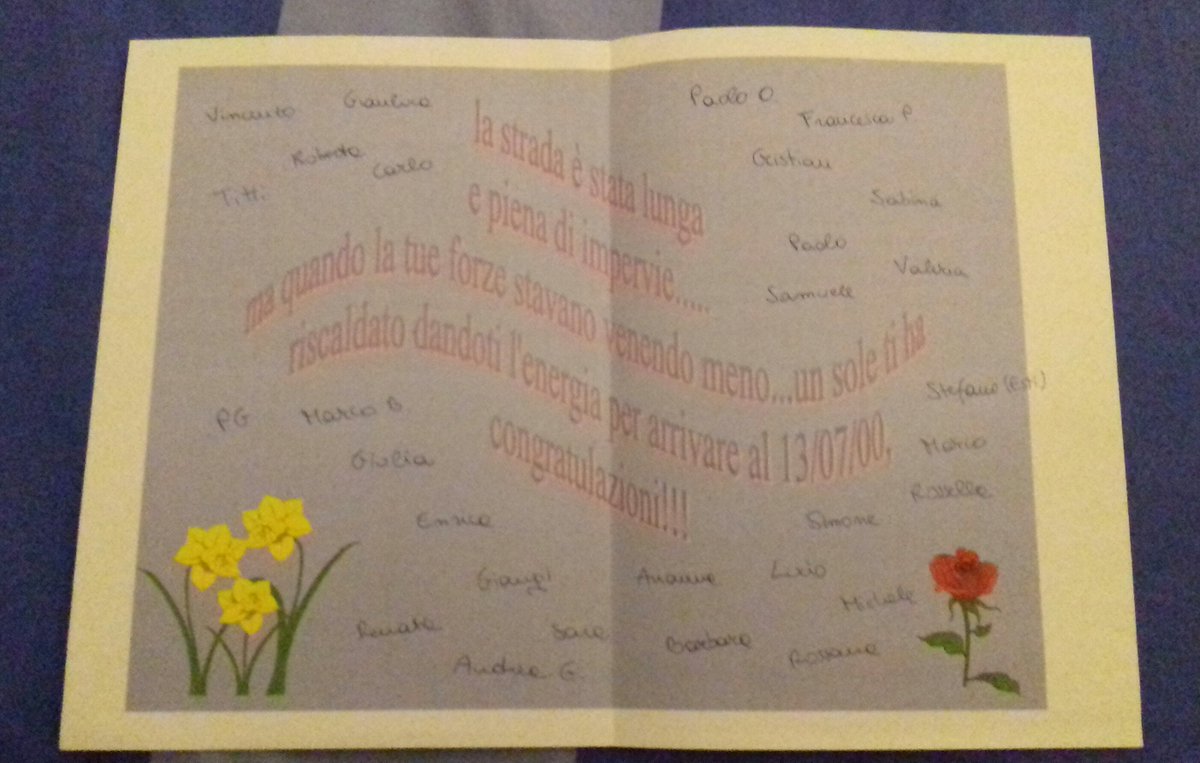 Vincenzo
Gianluca
Roberta
Carlo
Titti
la strada è stata lunga
e piena di impervie.....
ma quando la tue forze stavano venendo meno...un sole ti ha
riscaldato dandoti l'energia per arrivare al 13/07/00,
congratulazioni!!!
PG
Marco B.
Giulia
Enrica
Giangi
Renata
Sara
Andrea G.
Paolo O.
Francesca P
Cristian
Sabina
Paolo
Valeria
Samuele
Stefano (Esti)
Marco
Rossella
Simone
Arianna
Licio
Michele
Barbara
Rossana